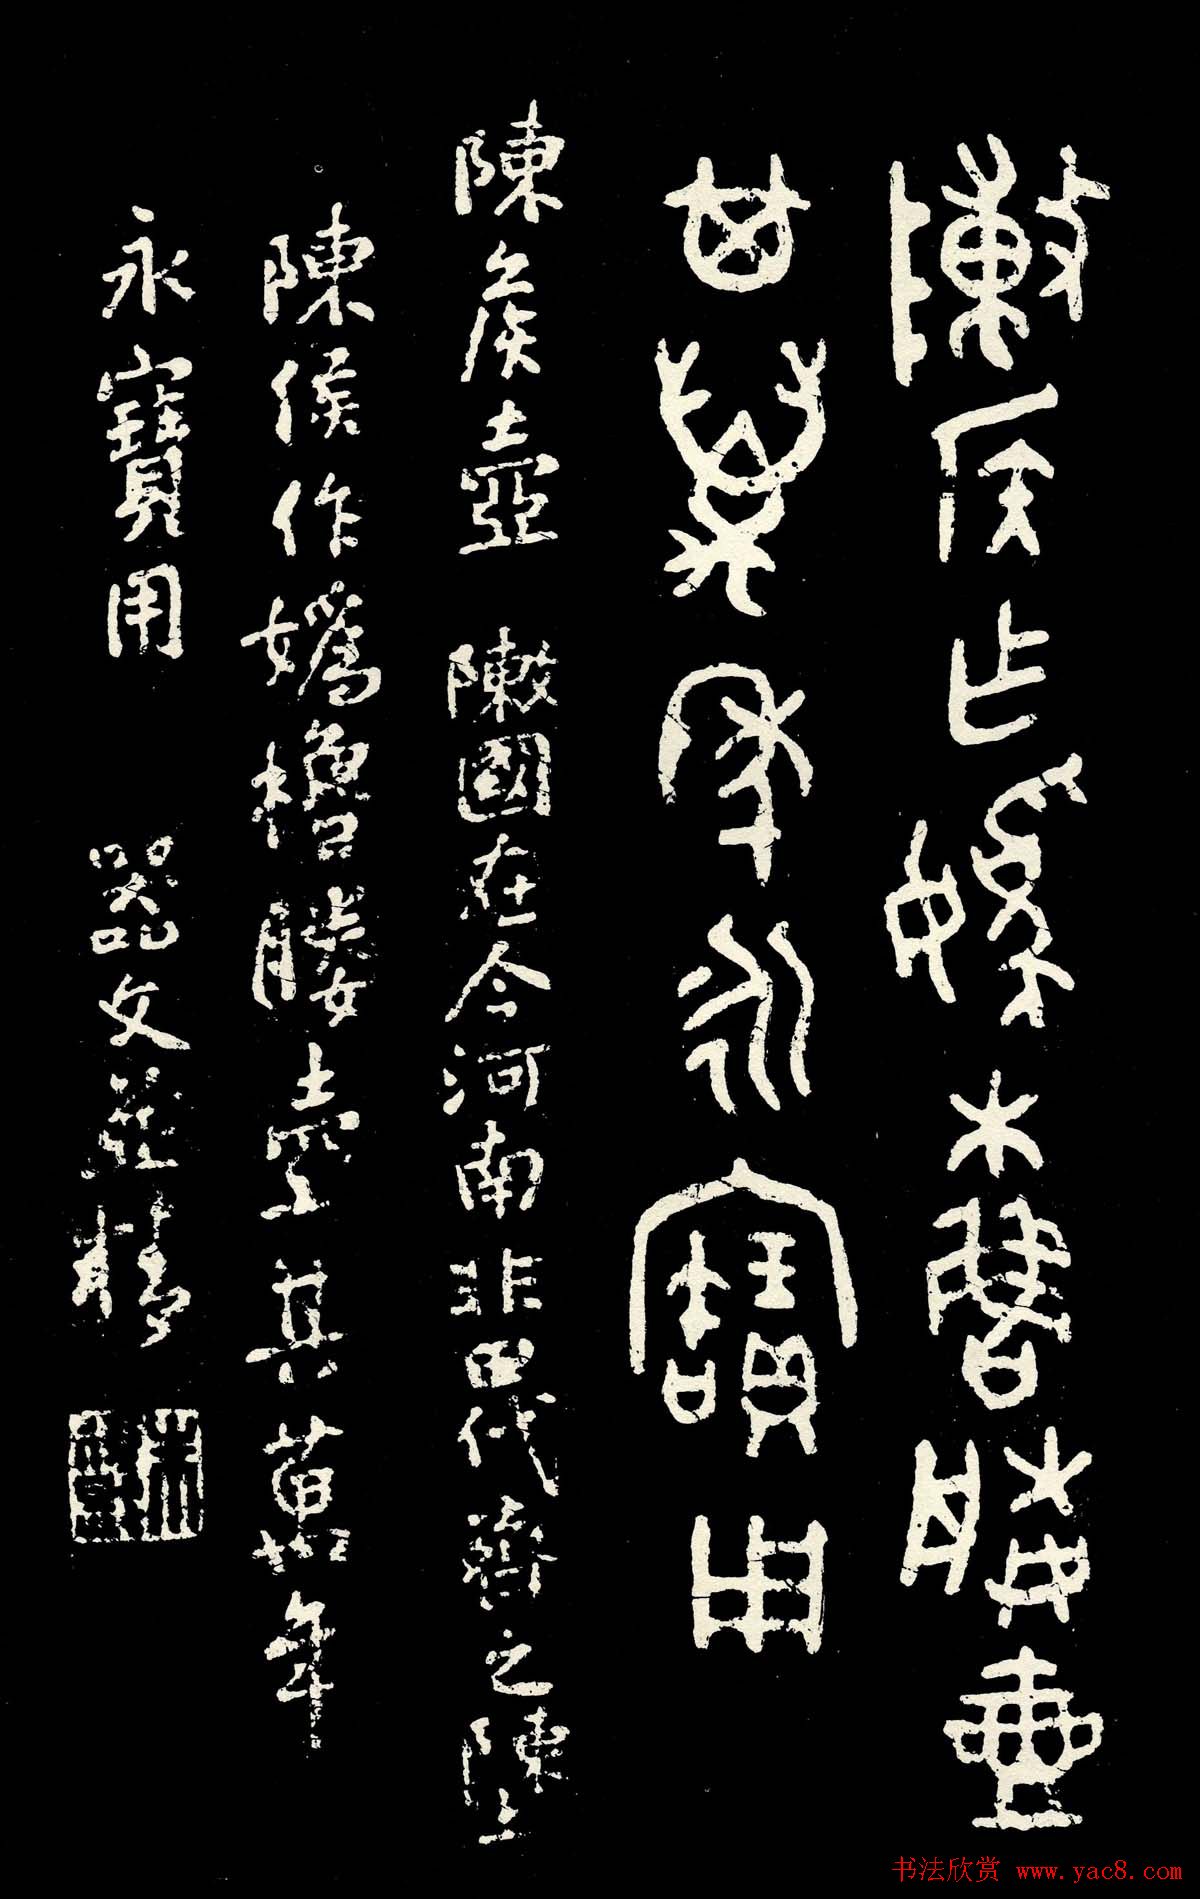 敶侯乍媯櫓媵壺
其萬年永寶用
陳侯壺 敶國在今河南非田代齊之塦
陳侯作媯櫓媵壺其萬年
永寶用 器文
书法欣赏 www.yac8.com